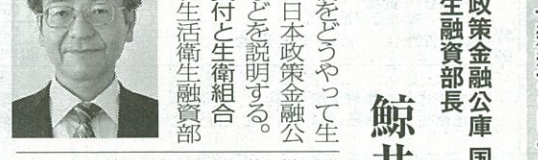 政策金融公庫 国
生融資部長
鯨井
をどうやって生
日本政策金融公
どを説明する。
付と生衛組合
生活衛生融資部